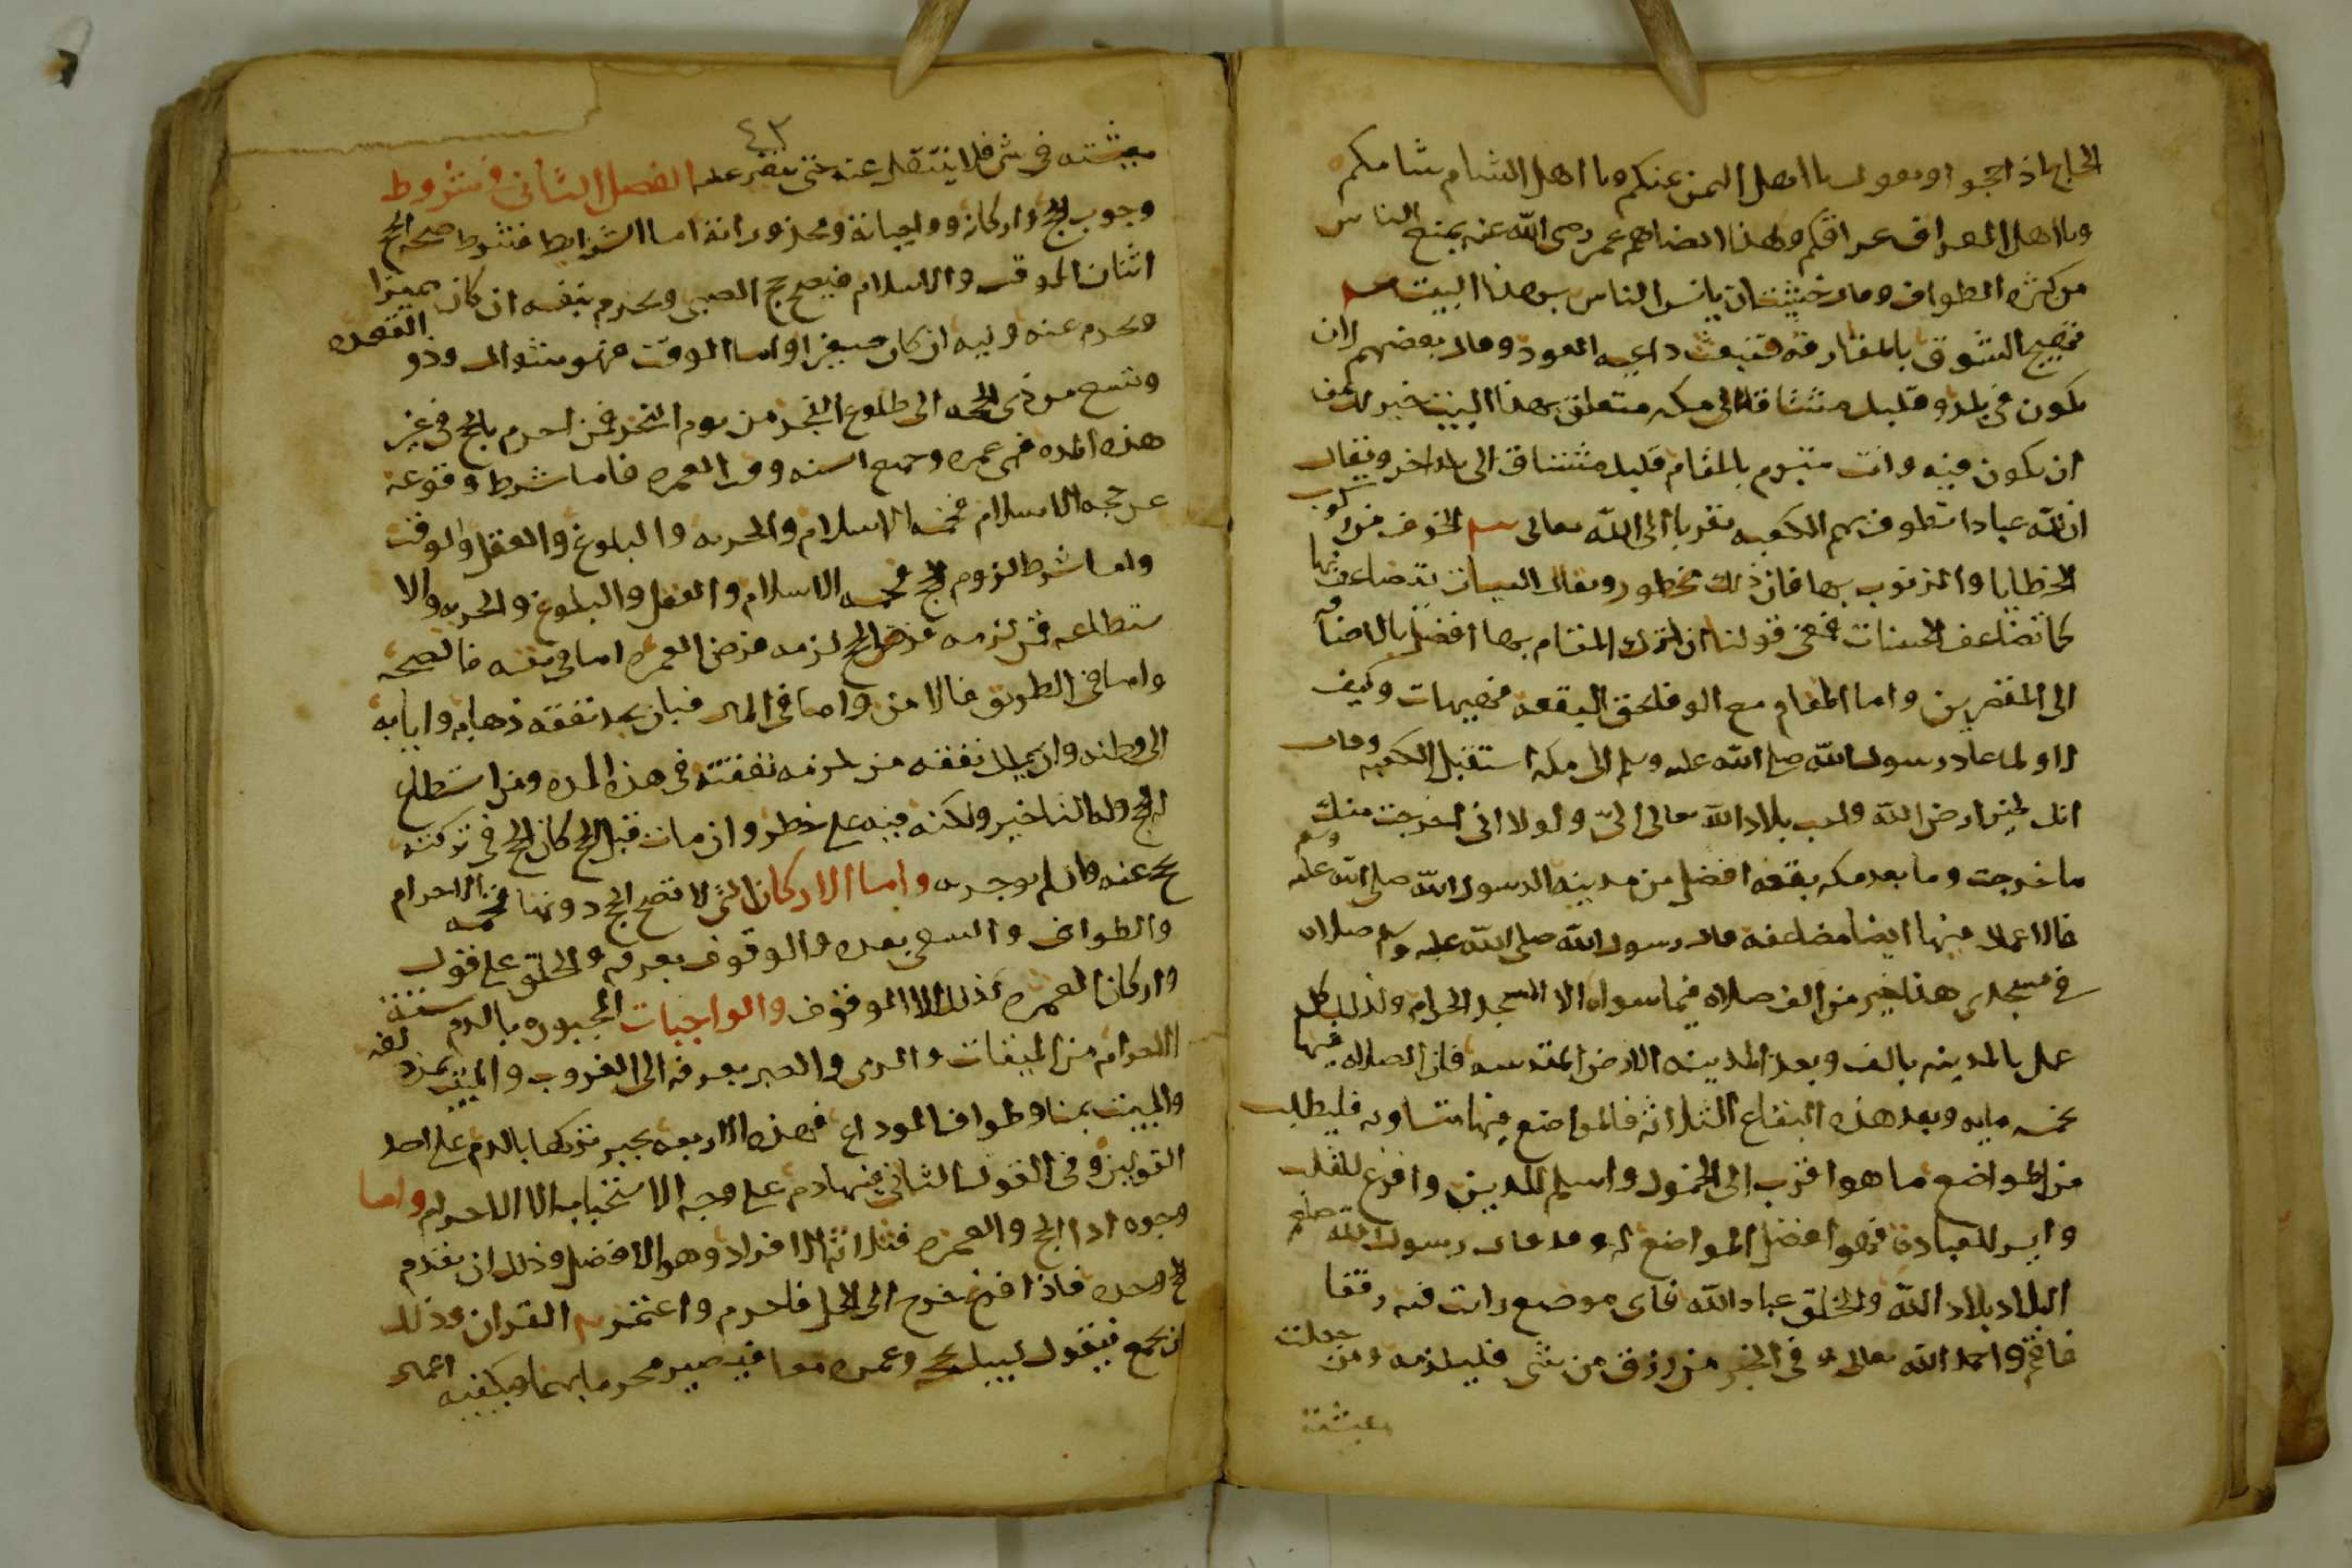 الحاج اذا حجوا ويقول يا اهل اليمن يمنكم ويا اهل الشام شامكم
ويا اهل العراق عراقكم ولهذا ايضا هم عمر رضى الله عنه بمنع الناس
من كثرة الطواف وقال خشيت ان يانس الناس بهذا البيت
تهييج الشوق بالمفارقه فتنبعث داعيه العود وقال بعضهم لان
تكون فى بلد وقلبك مشتاقا الى مكه متعلق بهذا البيت خير لك من
ان تكون فيه وانت متبرم بالمقام قلبك مشتاق الى بلد اخر ويقال
ان لله عبادا تطوف بهم الكعبه تقربا الى الله تعالى الخوف من ركوب
الخطايا والذنوب بها فان ذلك مخطور ويقال السيات تتضاعف بها
كما تضاعف الحسنات فمعنى قولنا ان ترك المقام بها افضل بالاضافه
الى المقصرين واما المقام مع الوفا بحق البقعه فهيهات وكيف
لا ولما عاد رسول الله صلى الله عليه وسلم الى مكه استقبل الكعبه وقال
انك لخير ارض الله واحب بلاد الله تعالى الىّ ولولا انى اخرجت منك
ما خرجت وما بعد مكه بقعه افضل من مدينه الرسول الله صلى الله عليه وسلم
فالاعمال فيها ايضا مضاعفه قال رسول الله صلى الله عليه وسلم صلاه
فى مسجدى هذا خير من الف صلاه فيما سواه الا المسجد الحرام وكذلك كل
عمل بالمدينه بالف وبعد المدينه الارض المقدسه فان الصلاه فيها
بخمسمايه وبعد هذه البقاع الثلاثه فالمواضع فيها متساويه فليطلب
من المواضع ما هو اقرب الى الخمول واسلم للدين وافرغ للقلب
وايسر للعباده فهو افضل المواضع له وقد قال رسول الله صلعم
البلاد بلاد الله والخلق عباد الله فاى موضع رايت فيه رفقا
فاقم واحمد الله تعالى وفى الخبر من رزق من شى فليلزمه ومن جعلت
معيشته
٤٣
معيشته فى شى فلا ينتقل عنه حتى يتغير عليه الفصل الثانى فى شروط
وجوب الحج واركانه وواجباته ومحذوراته اما الشرايط فشرط صحه الحج
اثنان الوقت والاسلام فيصح حج الصبى ويحرم بنفسه ان كان مميزا
ويحرم عنه وليه ان كان صغيرا واما الوقت فهو شوال وذو القعده
وتسع من ذى الحجه الى طلوع الفجر من يوم النحر فمن احرم بالحج فى غير
هذه المده فهى عمره وجميع السنه وقت العمره فاما شرط وقوعه
عن حجه الاسلام فخمسه الاسلام والحريه والبلوغ والعقل والوقت
واما شرط لزوم الحج فخمسه الاسلام والعقل والبلوغ والحريه والا
ستطاعه فمن لزمه فرض الحج لزمه فرض العمره اما فى نفسه فالصحه
واما فى الطريق فالامن واما فى المال فبان يجد نفقه ذهابه وايابه
الى وطنه وان يملك نفقه من يلزمه نفقته فى هذه المده ومن استطاع
الحج وله التاخير ولكنه فيه على خطر وان مات قبل الحج كان الحج فى تركته
يحج عنه وان لم يوص به واما الاركان التى لا تصح الحج دونها فخمسه الاحرام
والطواف والسعى بعده والوقوف بعرفه والحلق على قول
واركان العمره كذلك الا الوقوف والواجبات المجبوره بالدم سته
الاحرام من الميقات والرمى والصبر بعرفه الى الغروب والمبيت بمزدلفه
والمبيت بمنا وطواف الوداع فهذه الاربعه يجبر تركها بالدم على احد
القولين وفى القول الثانى فيها دم على وجه الاستحباب الا الاحرام واما
وجوه ادا الحج والعمره فثلاثه الافراد وهو الافضل وذلك ان يقدم
الحج وحده فاذا فرغ خرج الى الحل فاحرم واعتمر القران وذلك
ان يجمع فيقول لبيك بحج وعمره معا فيصير محرما بهما ويكفيه اعمال